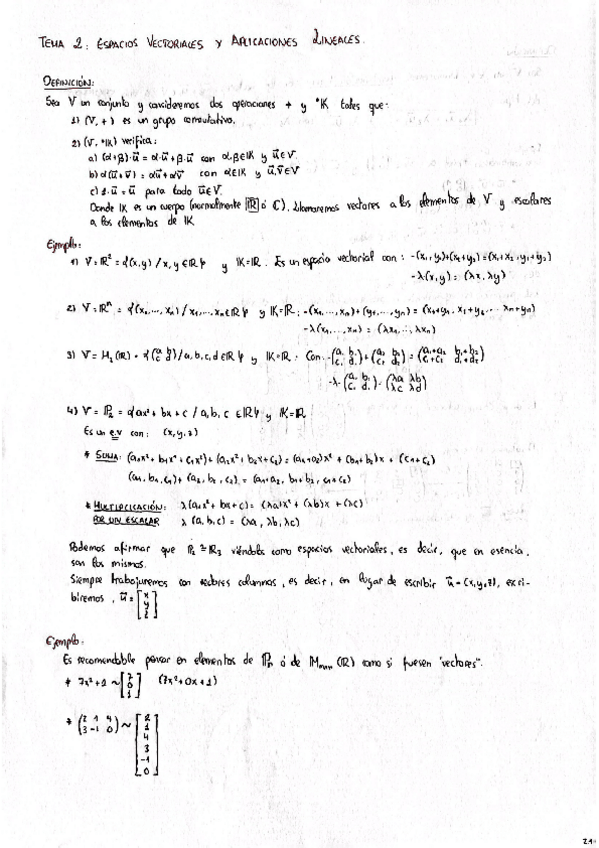 TEMA 2: ESPACIOS VECTORIALES Y APLICACIONES LINEALES.
DEFINICIÓN:
Sea V un conjunto y consideremos dos operaciones + y ·IK tales que:
1) (V, +) es un grupo conmutativo.
2) (V, ·IK) verifica:
a) (α+β)·u⃗ = α·u⃗ + β·u⃗ con α,β∈IK y u⃗∈V.
b) α(u⃗+v⃗) = αu⃗+αv⃗ con α∈IK y u⃗,v⃗∈V
c) 1·u⃗ = u⃗ para todo u⃗∈V.
Donde IK es un cuerpo (normalmente ℝ ó ℂ). Llamaremos vectores a los elementos de V y escalares
a los elementos de IK
Ejemplo:
1) V=ℝ² = {(x,y) / x,y∈ℝ} y IK=ℝ. Es un espacio vectorial con: -(x₁,y₁)+(x₂+y₂)=(x₁+x₂,y₁+y₂)
-λ(x,y) = (λx, λy)
2) V=ℝⁿ = {(x₁,...,xₙ) / x₁,...,xₙ∈ℝ} y IK=ℝ: -(x₁,...,xₙ)+(y₁,...,yₙ) = (x₁+y₁, x₂+y₂... xₙ+yₙ)
-λ(x₁,...,xₙ) = (λx₁,...,λxₙ)
3) V= M₂(ℝ) = {(a b; c d) / a,b,c,d∈ℝ} y IK=ℝ. Con: -(a₁ b₁; c₁ d₁)+(a₂ b₂; c₂ d₂) = (a₁+a₂ b₁+b₂; c₁+c₂ d₁+d₂)
-λ·(a b; c d) = (λa λb; λc λd)
4) V = ℙ₂ = {ax²+bx+c / a,b,c ∈ℝ} y IK=ℝ
Es un e.v con: (x,y,z)
* SUMA: (a₁x²+b₁x+c₁x²)+(a₂x²+b₂x+c₂) = (a₁+a₂)x²+(b₁+b₂)x+(c₁+c₂)
(a₁,b₁,c₁)+(a₂,b₂,c₂) = (a₁+a₂, b₁+b₂, c₁+c₂)
* MULTIPLICACIÓN: λ(ax²+bx+c) = (λa)x²+(λb)x+(λc)
POR UN ESCALAR λ(a,b,c) = (λa, λb, λc)
Podemos afirmar que ℙ₂≅ℝ₃ viéndolos como espacios vectoriales, es decir, que en esencia
son los mismos.
Siempre trabajaremos con vectores columnas, es decir, en lugar de escribir u⃗=(x,y,z), escri-
biremos, u⃗=[x; y; z]
Ejemplo:
Es recomendable pensar en elementos de ℙₙ ó de Mₘₓₙ(ℝ) como si fuesen "vectores".
* 7x²+1 ~ [7; 0; 1] (7x²+0x+1)
* (2 1 4; 3 -1 0) ~ [2; 1; 4; 3; -1; 0]